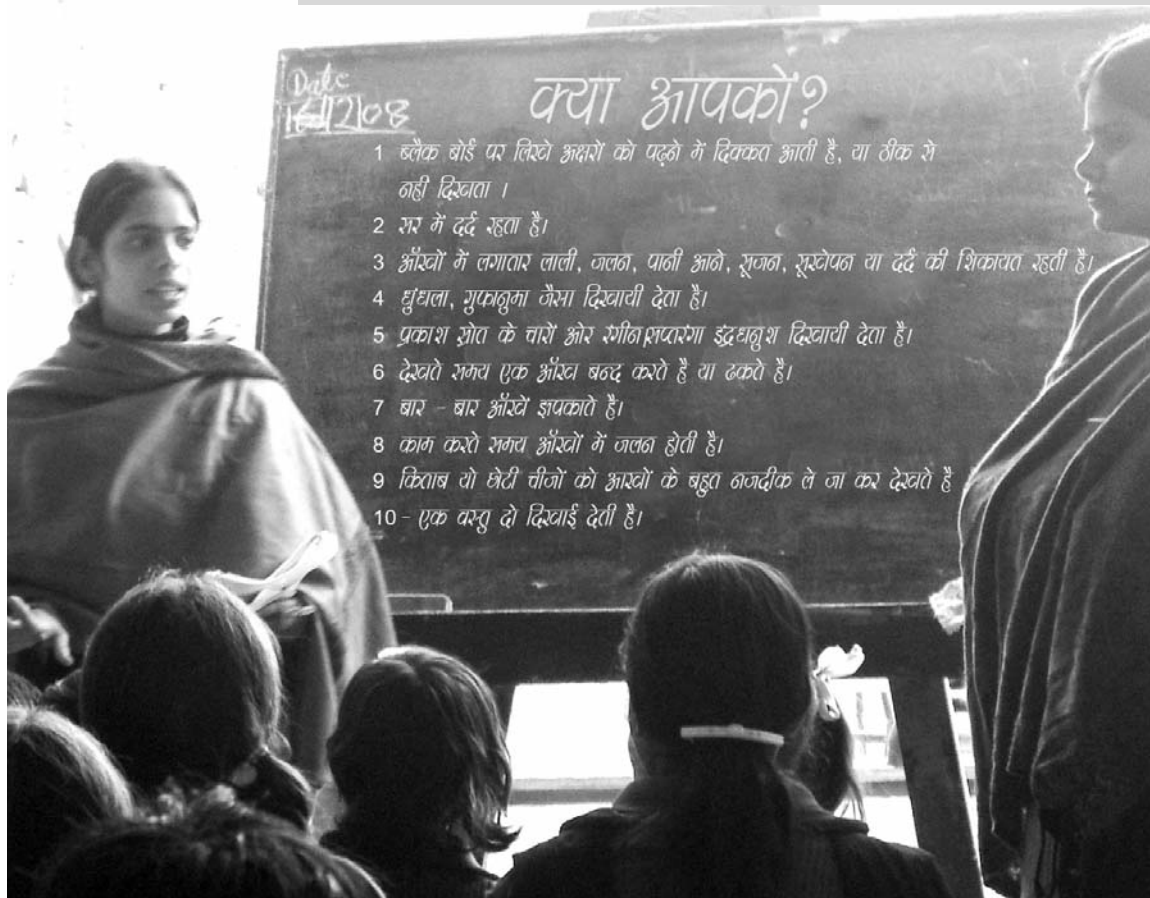 Date
16/12/08
क्या आपको?
1 ब्लैक बोर्ड पर लिखे अक्षरों को पढ़ने में दिक्कत आती है, या ठीक से
नही दिखता ।
2 सर में दर्द रहता है।
3 आँखों में लगातार लाली, जलन, पानी आने, सूजन, सूखेपन या दर्द की शिकायत रहती है।
4 धुंधला, गुफानुमा जैसा दिखायी देता है।
5 प्रकाश स्रोत के चारों ओर रंगीन/सप्तरंगा इंद्रधनुश दिखायी देता है।
6 देखते समय एक आँख बन्द करते है या ढकते है।
7 बार - बार आँखें झपकाते है।
8 काम करते समय आँखों में जलन होती है।
9 किताब यो छोटी चीजों को आखों के बहुत नजदीक ले जा कर देखते है
10 - एक वस्तु दो दिखाई देती है।